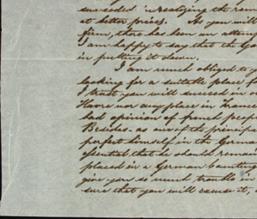 succeeded in realizing the rem
at better prices. As you will
firm, there has been an attemp
I am happy to say that the Go
in putting it down.
I am much obliged to y
looking for a suitable place f
I trust you will succeed in o
Havre nor any place in France
bad opinion of french people
Besides, as one of the princip
perfect himself in the German
essential that he should remain
placed in a German
give you so much trouble in
sure that you will excuse it, a